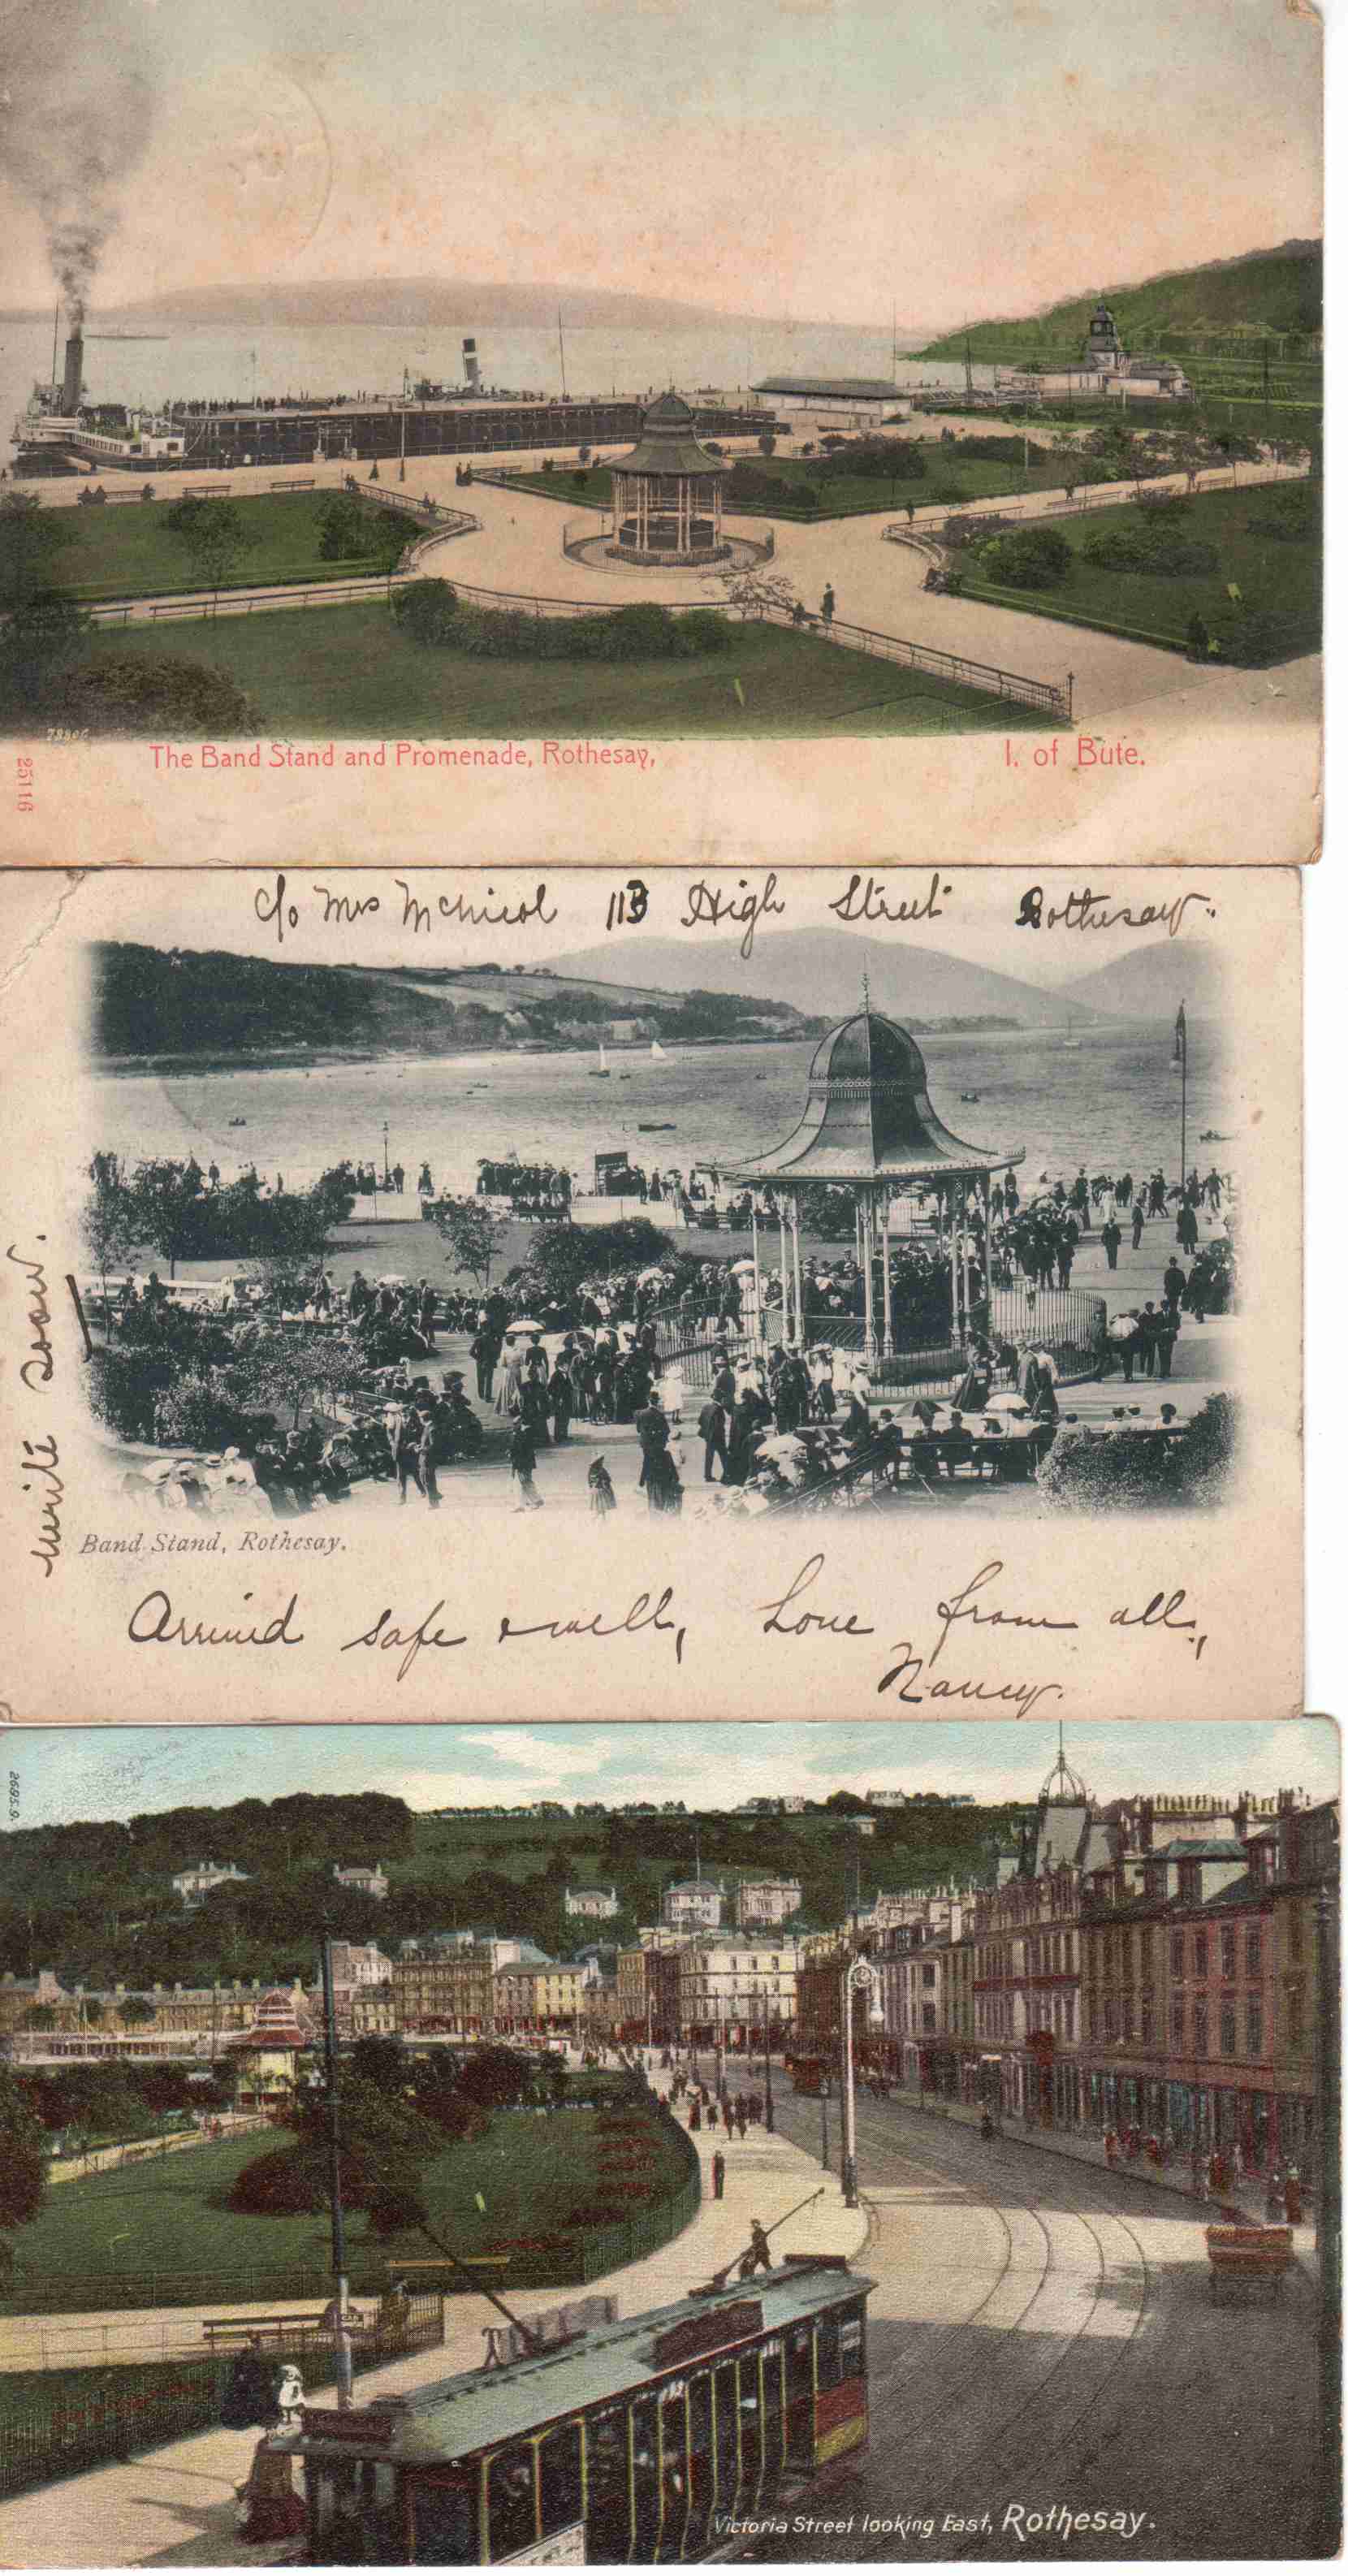 The Band Stand and Promenade, Rothesay, I. of Bute.
25116
c/o Mrs McNicol 113 High Street Rothesay.
write soon.
Band Stand, Rothesay.
Arrived safe & well, Love from all,
Nancy.
2695.9.
CAR
Victoria Street looking East, Rothesay.